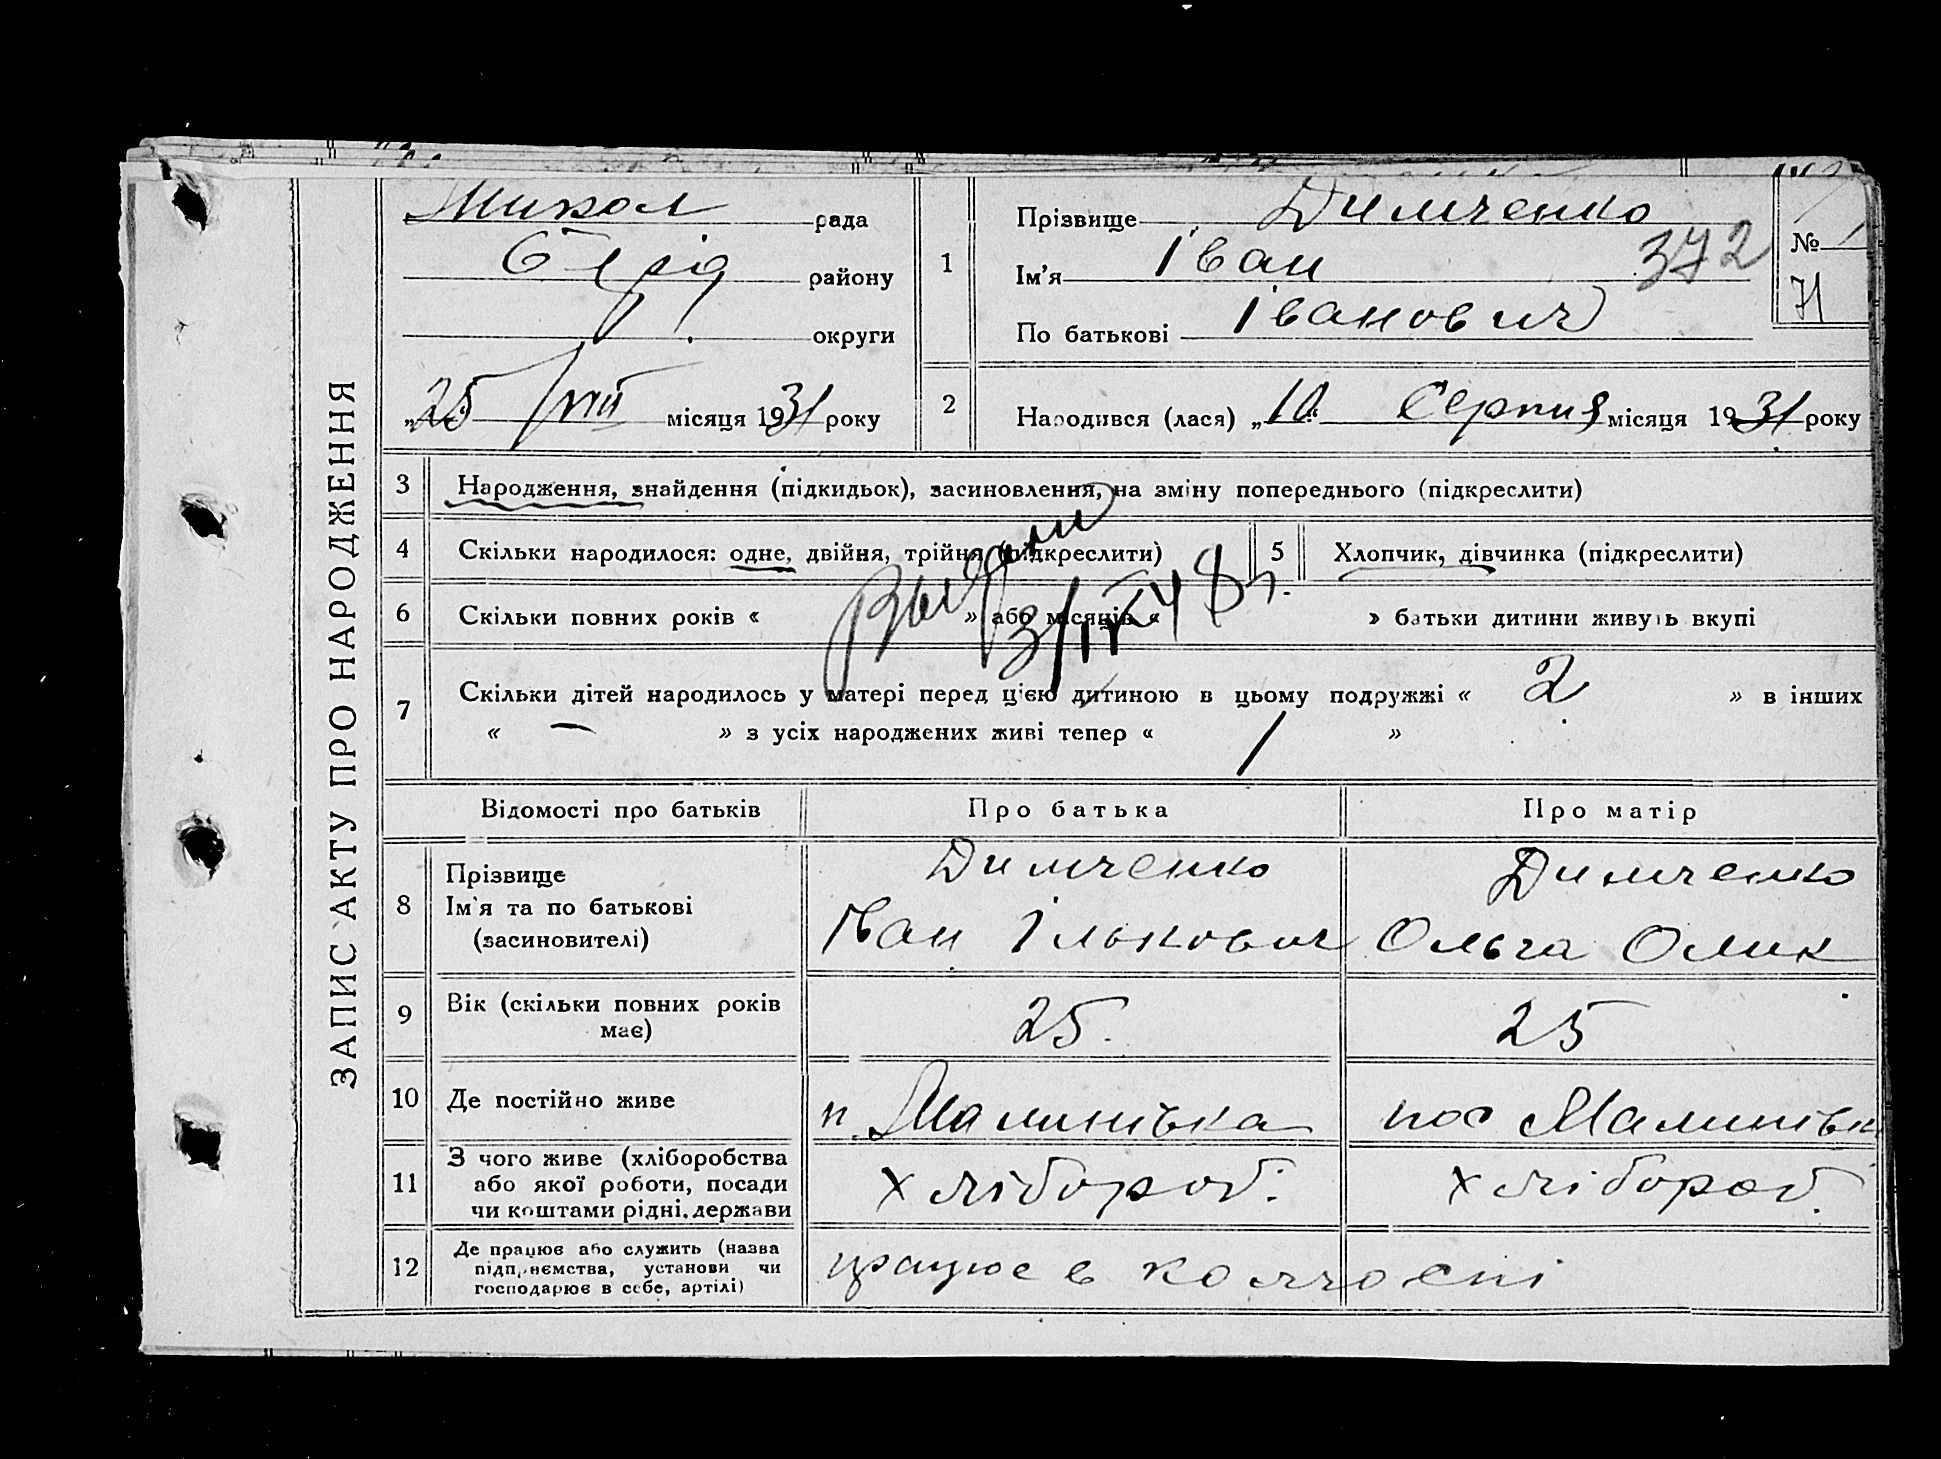 ЗАПИС АКТУ ПРО НАРОДЖЕННЯ
Микол рада
району
округи
„25 VIII місяця 1931 року
1
Прізвище Димченко
Ім'я Іван 372
По батькові Іванович
№
71
2
Народився (лася) „10“ Серпня місяця 1931 року
3 Народження, знайдення (підкидьок), засиновлення, на зміну попереднього (підкреслити)
4 Скільки народилося: одне, двійня, трійня (підкреслити) 5 Хлопчик, дівчинка (підкреслити)
6 Скільки повних років « » або місяців « » батьки дитини живуть вкупі
3/IV 48 г.
7 Скільки дітей народилось у матері перед цією дитиною в цьому подружжі « 2 » в інших
« — » з усіх народжених живі тепер « 1 »
Відомості про батьків Про батька Про матір
8 Прізвище Димченко Димченко
Ім'я та по батькові Іван Ількович Ольга Олик
(засиновителі)
9 Вік (скільки повних років має) 25. 25
10 Де постійно живе п. Малинівка пос Малинівк
11 З чого живе (хліборобства хлібороб. хлібороб.
або якої роботи, посади
чи коштами рідні, держави
12 Де працює або служить (назва працює в колгоспі
підприємства, установи чи
господарює в себе, артілі)